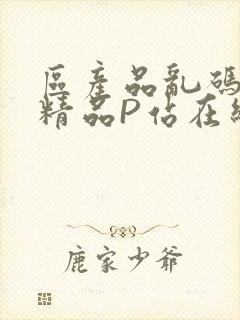 區產品亂碼
精品P佔在線
鹿家少爺